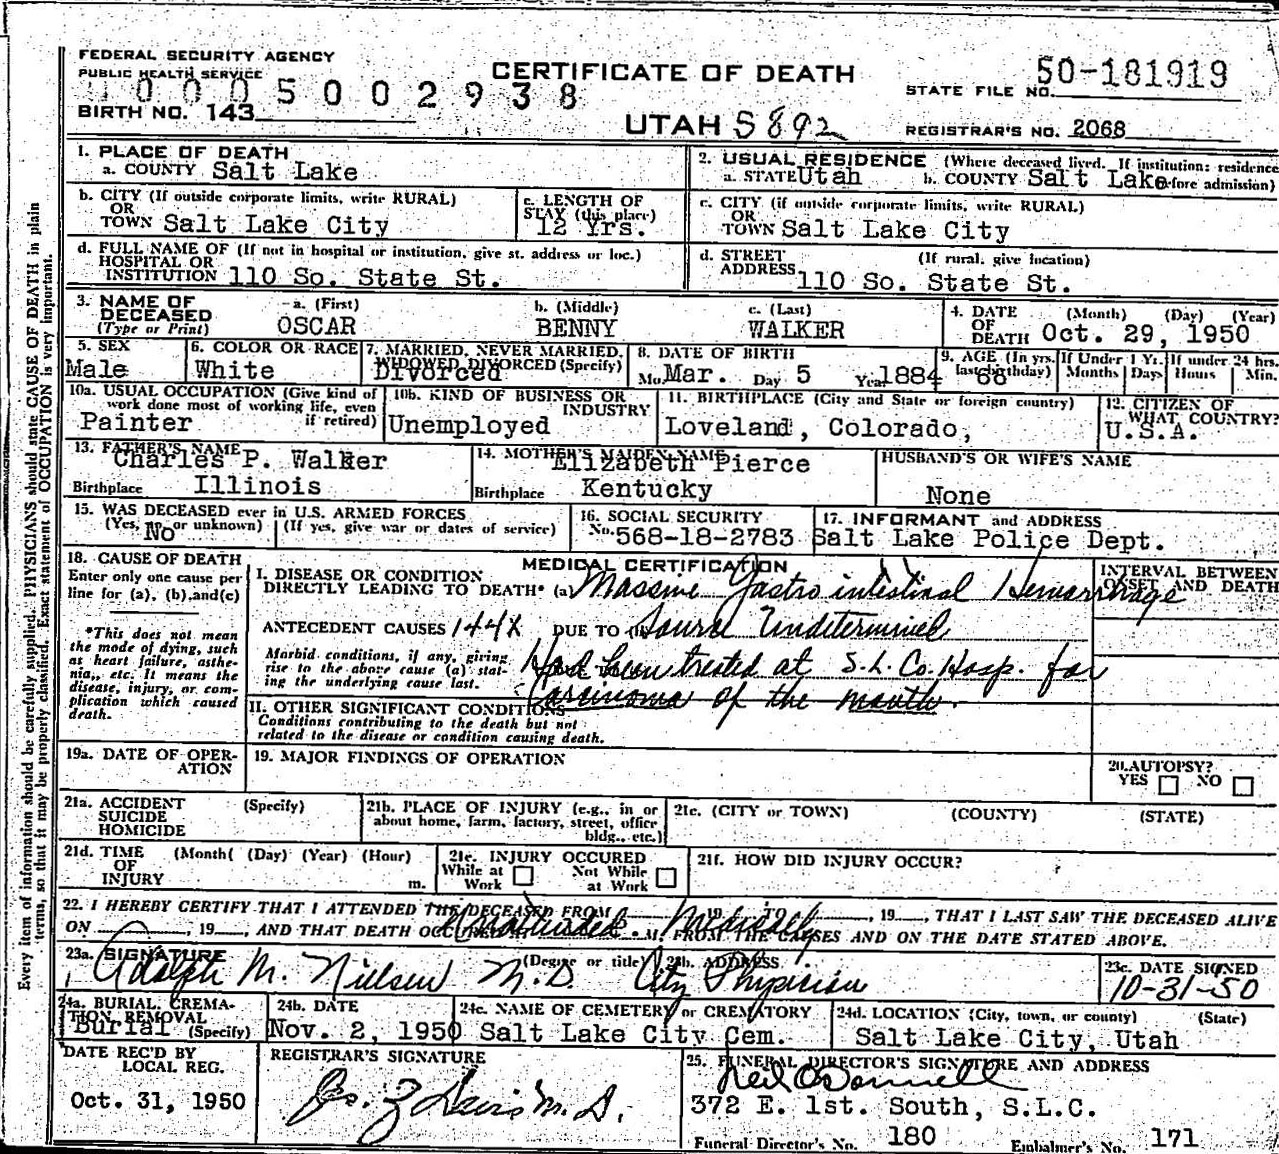 FEDERAL SECURITY AGENCY
PUBLIC HEALTH SERVICE
CERTIFICATE OF DEATH
50-181919
STATE FILE NO.
0005002938
BIRTH NO. 143
UTAH 5892
REGISTRAR'S NO. 2068
1. PLACE OF DEATH
a. COUNTY Salt Lake
2. USUAL RESIDENCE (Where deceased lived. If institution: residence before admission)
a. STATE Utah b. COUNTY Salt Lake
b. CITY (If outside corporate limits, write RURAL)
OR
TOWN Salt Lake City
c. LENGTH OF
STAY (this place)
12 Yrs.
c. CITY (if outside corporate limits, write RURAL)
OR
TOWN Salt Lake City
d. FULL NAME OF (If not in hospital or institution, give st. address or loc.)
HOSPITAL OR
INSTITUTION 110 So. State St.
d. STREET (If rural, give location)
ADDRESS 110 So. State St.
3. NAME OF
DECEASED
(Type or Print)
a. (First) b. (Middle) c. (Last)
OSCAR BENNY WALKER
4. DATE (Month) (Day) (Year)
OF
DEATH Oct. 29, 1950
5. SEX
Male
6. COLOR OR RACE
White
7. MARRIED, NEVER MARRIED,
WIDOWED DIVORCED (Specify)
Divorced
8. DATE OF BIRTH
Mo. Mar. Day 5 Year 1884
9. AGE (In yrs. last birthday)
66
If Under 1 Yr.
Months Days
If under 24 hrs.
Hours Min.
10a. USUAL OCCUPATION (Give kind of
work done most of working life, even
if retired)
Painter
10b. KIND OF BUSINESS OR
INDUSTRY
Unemployed
11. BIRTHPLACE (City and State or foreign country)
Loveland, Colorado,
12. CITIZEN OF
WHAT COUNTRY?
U.S.A.
13. FATHER'S NAME
Charles P. Walker
Birthplace Illinois
14. MOTHER'S MAIDEN NAME
Elizabeth Pierce
Birthplace Kentucky
HUSBAND'S OR WIFE'S NAME
None
15. WAS DECEASED ever in U.S. ARMED FORCES
(Yes, no or unknown) (If yes, give war or dates of service)
No
16. SOCIAL SECURITY
No. 568-18-2783
17. INFORMANT and ADDRESS
Salt Lake Police Dept.
18. CAUSE OF DEATH
Enter only one cause per
line for (a), (b), and (c)
*This does not mean
the mode of dying, such
as heart failure, asthe-
nia,, etc. It means the
disease, injury, or com-
plication which caused
death.
MEDICAL CERTIFICATION
I. DISEASE OR CONDITION
DIRECTLY LEADING TO DEATH* (a) Massive Gastro intestinal Hemorrhage
INTERVAL BETWEEN
ONSET AND DEATH
ANTECEDENT CAUSES 144X DUE TO (b) Source Undetermined
Morbid conditions, if any, giving
rise to the above cause (a) stat-
ing the underlying cause last.
Had been treated at S.L. Co. Hosp. for
Carcinoma of the mouth.
II. OTHER SIGNIFICANT CONDITIONS
Conditions contributing to the death but not
related to the disease or condition causing death.
19a. DATE OF OPER-
ATION
19. MAJOR FINDINGS OF OPERATION
20. AUTOPSY?
YES NO
21a. ACCIDENT (Specify)
SUICIDE
HOMICIDE
21b. PLACE OF INJURY (e.g., in or
about home, farm, factory, street, office
bldg., etc.)
21c. (CITY or TOWN) (COUNTY) (STATE)
21d. TIME (Month( (Day) (Year) (Hour)
OF
INJURY m.
21e. INJURY OCCURED
While at Work Not While at Work
21f. HOW DID INJURY OCCUR?
22. I HEREBY CERTIFY THAT I ATTENDED THE DECEASED FROM , 19 TO , 19 , THAT I LAST SAW THE DECEASED ALIVE
ON , 19 , AND THAT DEATH OCCURED M, FROM THE CAUSES AND ON THE DATE STATED ABOVE.
Unattended. Medically
23a. SIGNATURE (Degree or title) 23b. ADDRESS
Adolph M. Nielsen M.D. City Physician
23c. DATE SIGNED
10-31-50
24a. BURIAL, CREMA-
TION, REMOVAL
Burial (Specify)
24b. DATE
Nov. 2, 1950
24c. NAME OF CEMETERY or CREMATORY
Salt Lake City Cem.
24d. LOCATION (City, town, or county) (State)
Salt Lake City, Utah
DATE REC'D BY
LOCAL REG.
Oct. 31, 1950
REGISTRAR'S SIGNATURE
25. FUNERAL DIRECTOR'S SIGNATURE AND ADDRESS
Neil O'Donnell
372 E. 1st. South, S.L.C.
Funeral Director's No. 180 Embalmer's No. 171
Every item of information should be carefully supplied. PHYSICIANS should state CAUSE OF DEATH in plain
terms, so that it may be properly classified. Exact statement of OCCUPATION is very important.